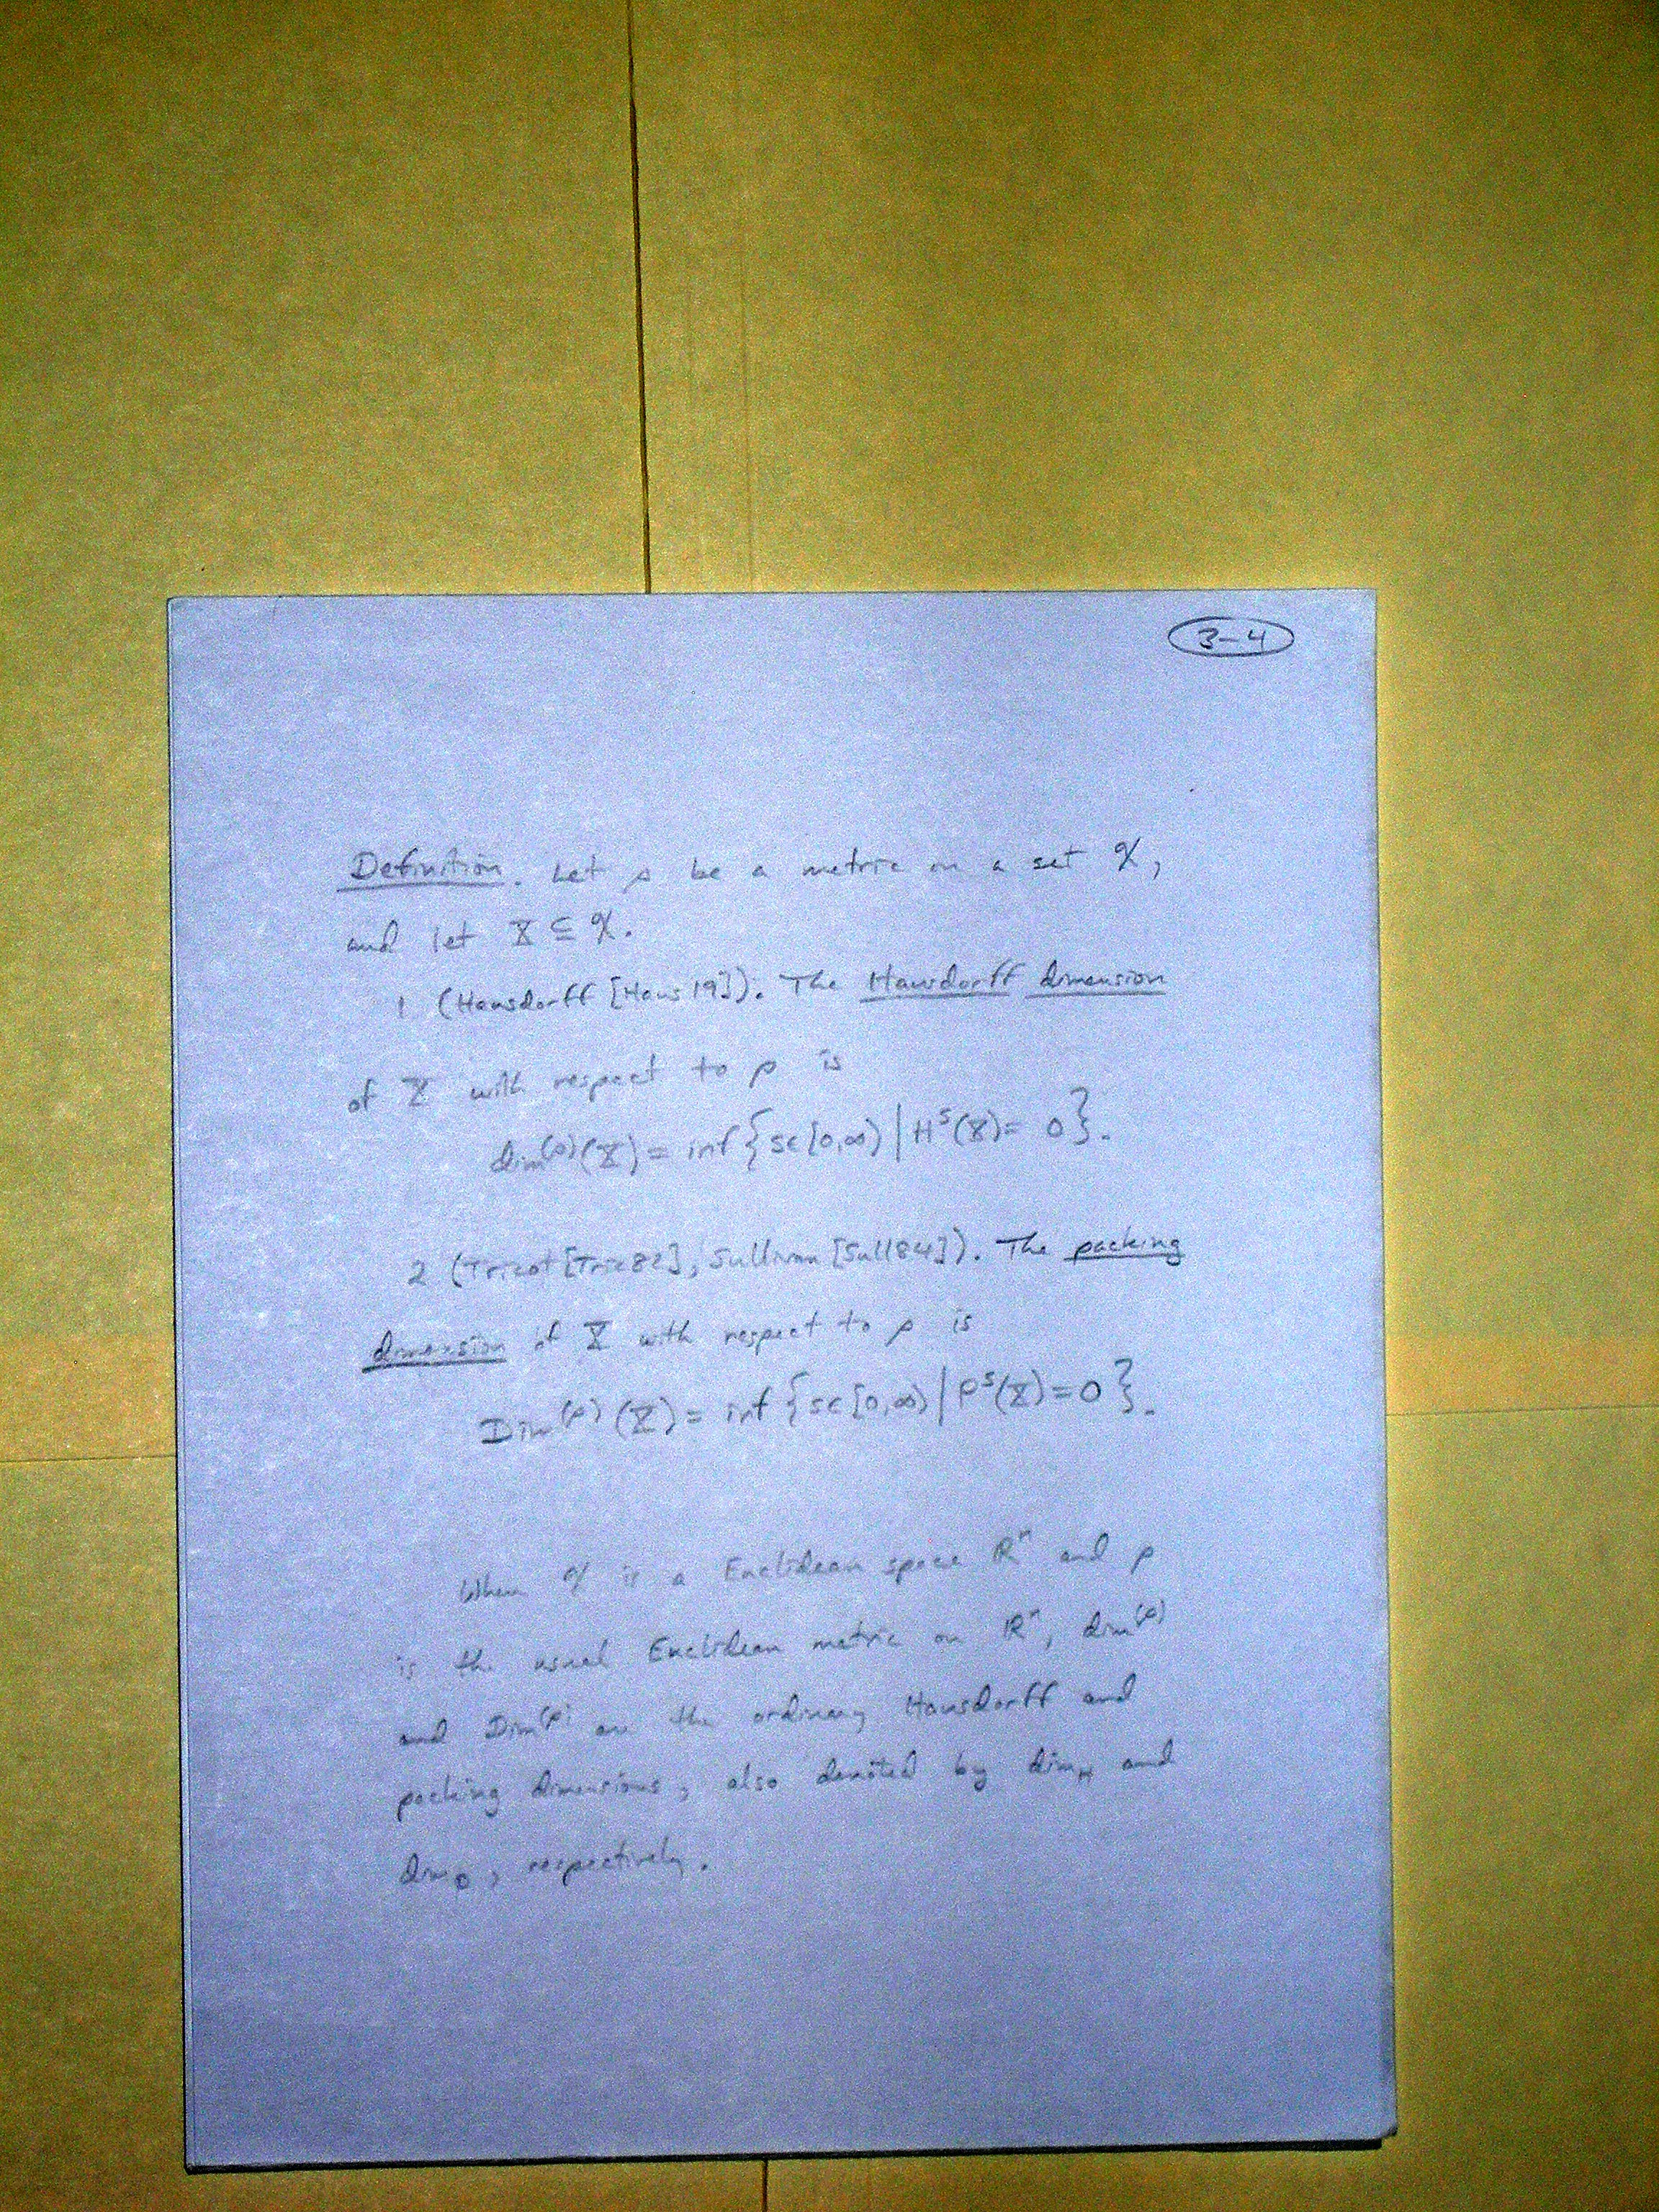 3-4
Definition. Let ρ be a metric on a set 𝒳,
and let X ⊆ 𝒳.
1 (Hausdorff [Haus19]). The Hausdorff dimension
of X with respect to ρ is
dim^(ρ)(X) = inf{s∈[0,∞) | H^s(X) = 0}.
2 (Tricot [Tric82], Sullivan [Sull84]). The packing
dimension of X with respect to ρ is
Dim^(ρ)(X) = inf{s∈[0,∞) | P^s(X) = 0}.
When 𝒳 is a Euclidean space ℝ^n and ρ
is the usual Euclidean metric on ℝ^n, dim^(ρ)
and Dim^(ρ) are the ordinary Hausdorff and
packing dimensions, also denoted by dim_H and
dim_p, respectively.